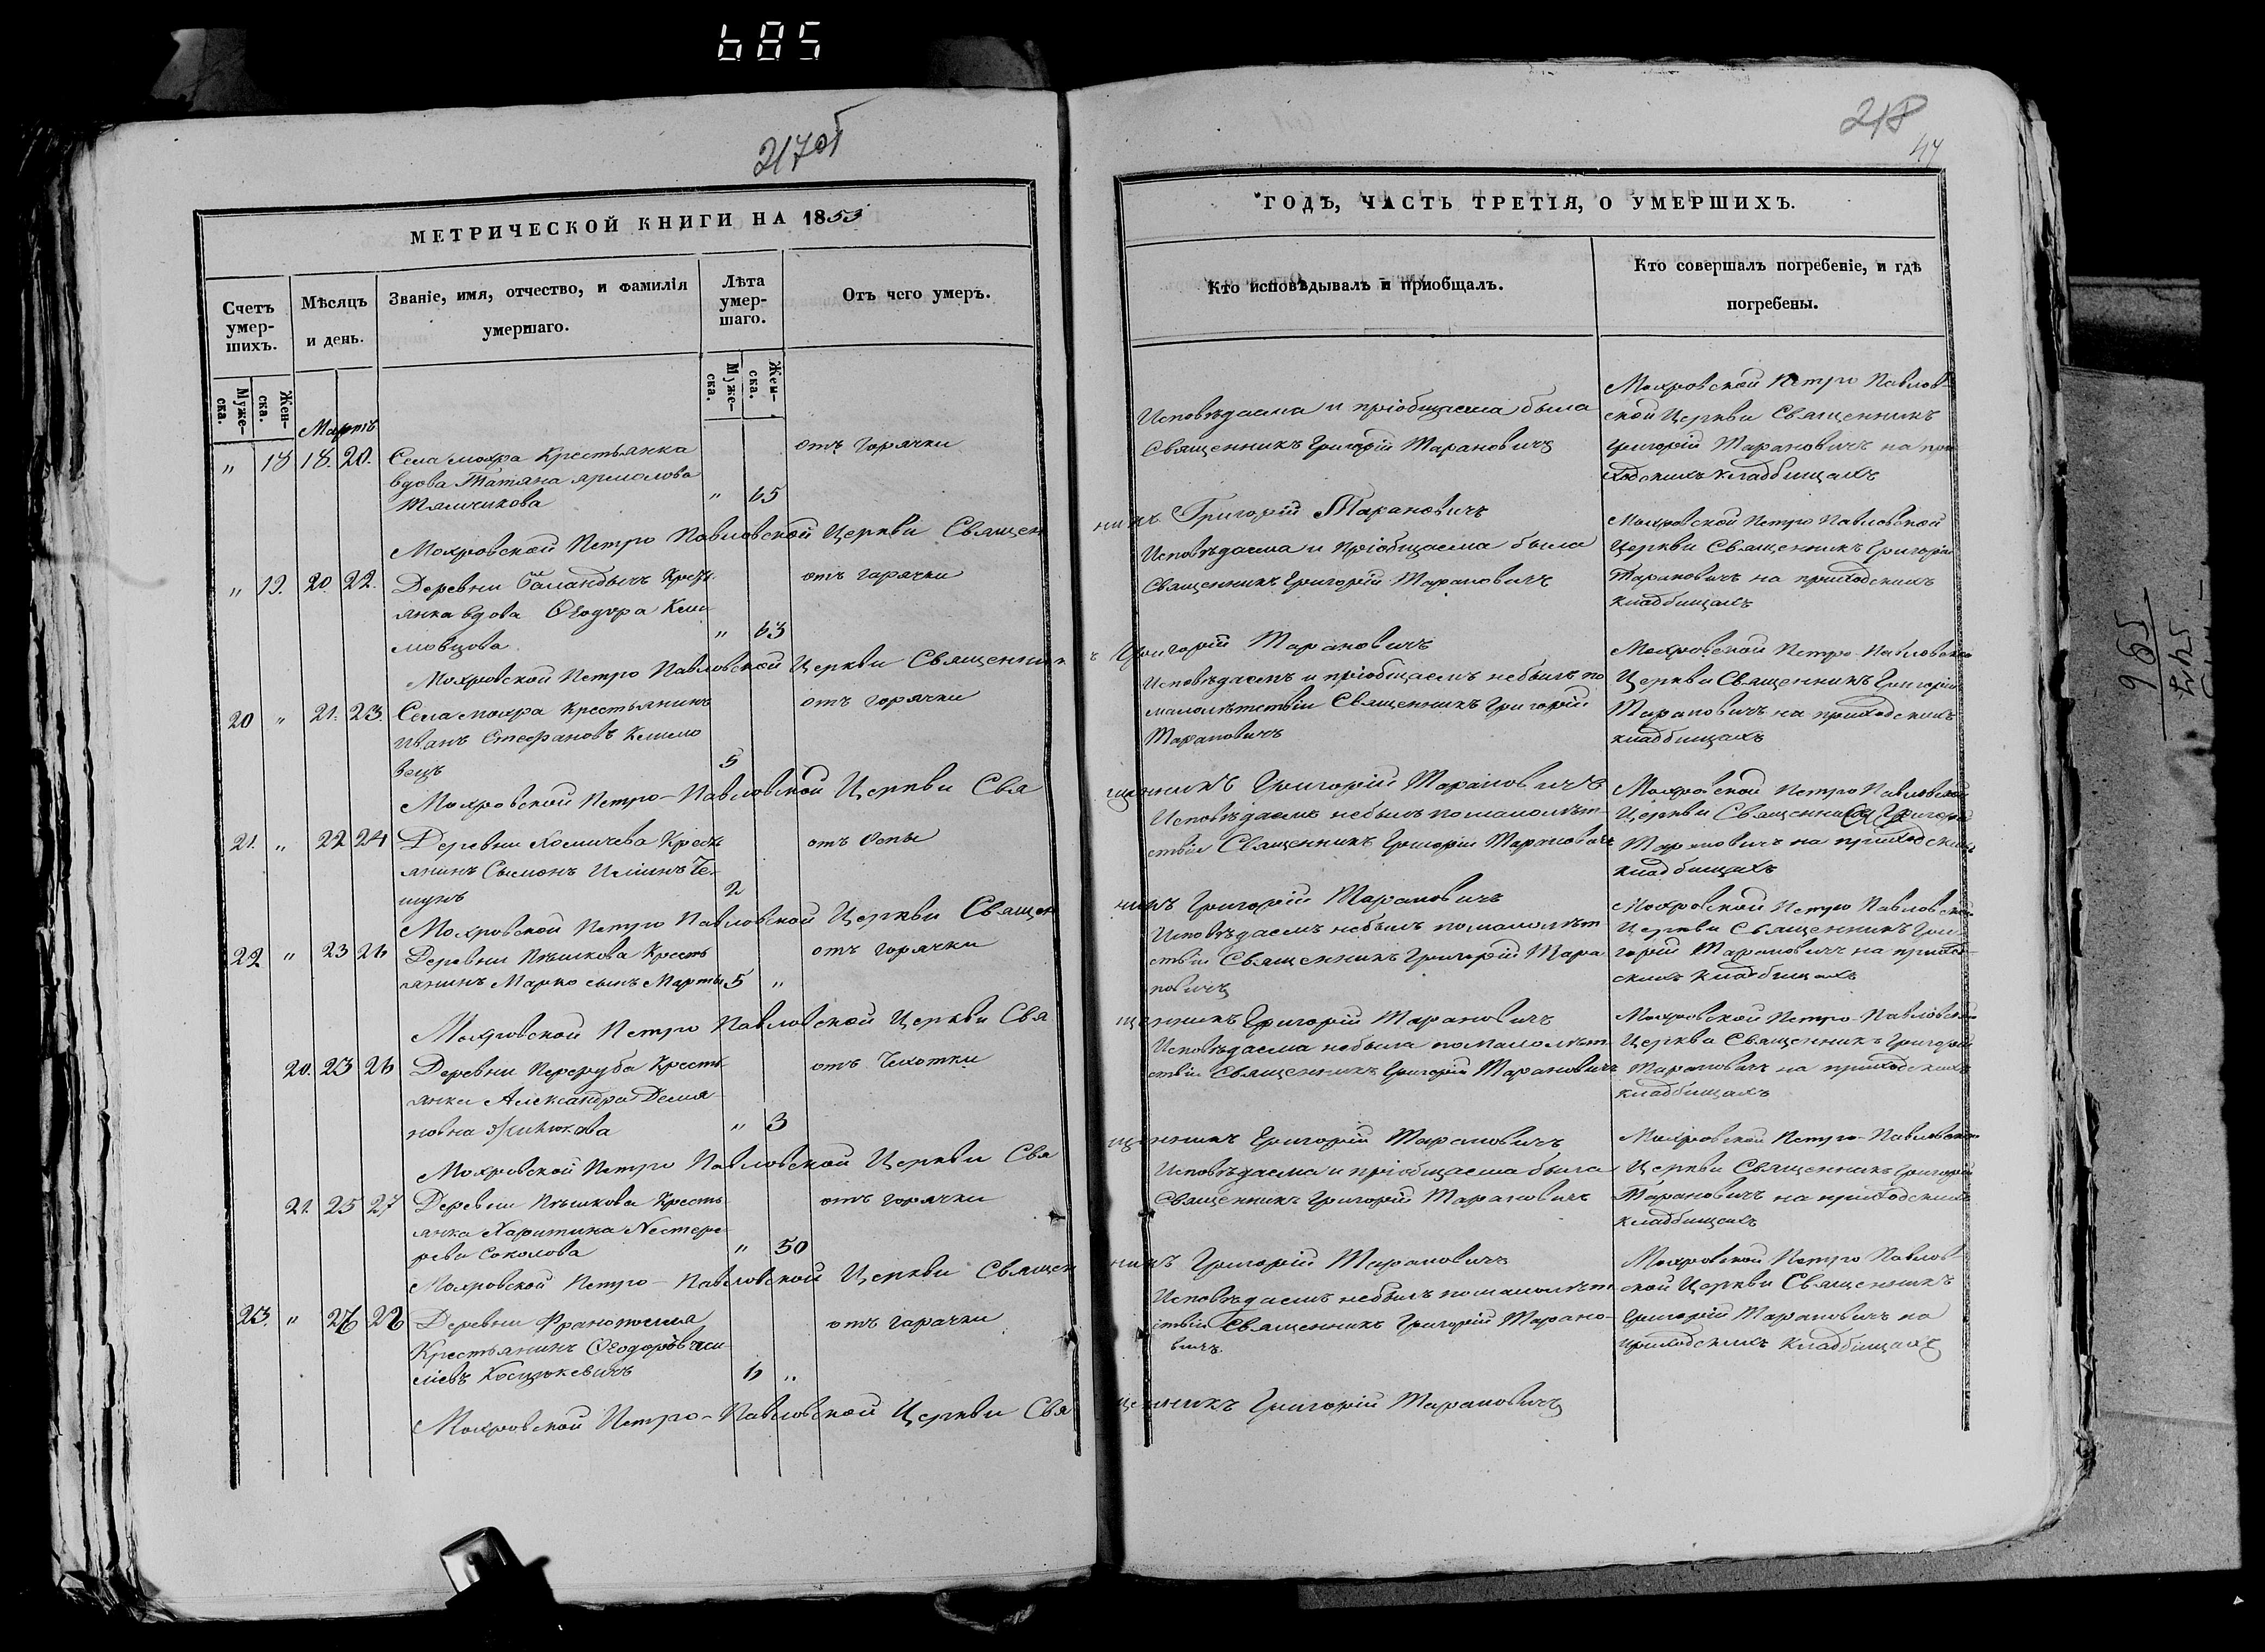 685
217об
218
47
МЕТРИЧЕСКОЙ КНИГИ НА 1853
ГОДЪ, ЧАСТЬ ТРЕТІЯ, О УМЕРШИХЪ.
Счетъ умер-шихъ.
Мѣсяцъ и день.
Званіе, имя, отчество, и фамилія умершаго.
Лѣта умер-шаго.
Отъ чего умеръ.
Кто исповѣдывалъ и приобщалъ.
Кто совершалъ погребеніе, и гдѣ погребены.
Муже-ска.
Жен-ска.
Муже-ска.
Жен-ска.
Мартъ
" 18 18. 20. Села Мохра Крестьянка
вдова Татяна Ярмолова
" 65
отъ горячки
Исповѣдаема и пріобщаема была
Священникъ Григорій Тарановичъ
Мохровской Петро Павлов-
ской Церкви Священникъ
Григорій Тарановичъ на при-
ходскихъ кладбищахъ
Мохровской Петро Павловской Церкви Священ
никъ Григорій Тарановичъ
" 19. 20. 22. Деревни Баландичъ Кресть-
янка вдова Ѳеодора Кли-
мовцова
" 63
отъ гарячки
Исповѣдаема и пріобщаема была
Священникъ Григорій Тарановичъ
Мохровской Петро Павловской
Церкви Священникъ Григорій
Тарановичъ на приходскихъ
кладбищахъ
Мохровской Петро Павловской Церкви Священник
ъ Григорій Тарановичъ
20 " 21. 23. Села Мохра Крестьянинъ
Иванъ Стефановъ Климо
вецъ
5
отъ горячки
Исповѣдаемъ и пріобщаемъ небылъ по
малолѣтствіи Священникъ Григорій
Тарановичъ
Мохровской Петро-Павловской
Церкви Священникъ Григорій
Тарановичъ на приходскихъ
кладбищахъ
Мохровской Петро-Павловской Церкви Свя
щенникъ Григорій Тарановичъ
21. " 22 24 Деревни Хомичева Кресть
янинъ Сымонъ Илiинъ
2
отъ Оспы
Исповѣдаемъ небылъ помалолѣт-
ствіи Священникъ Григорій Тарановичъ
Мохровской Петро Павловской
Церкви Священникъ Григорій
Тарановичъ на приходскихъ
кладбищахъ
Мохровской Петро Павловской Церкви Священ
никъ Григорій Тарановичъ
22 " 23 26 Деревни Пѣшкова Кресть
янинъ Марко сынъ Марты 5 "
отъ горячки
Исповѣдаемъ небылъ помалолѣт
ствіи Священникъ Григорій Тара
новичъ
Мохровской Петро Павловской
Церкви Священникъ Гри-
горій Тарановичъ на приход-
скихъ кладбищахъ
Мохровской Петро Павловской Церкви Свя
щенникъ Григорій Тарановичъ
20. 23 26 Деревни Переруба Кресть
янка Александра Демя
новна
" 3
отъ Чихотки
Исповѣдаема небыла помалолѣт
ствіи Священникъ Григорій Тарановичъ
Мохровской Петро-Павловской
Церкви Священникъ Григорій
Тарановичъ на приходскихъ
кладбищахъ
Мохровской Петро Павловской Церкви Свя
щенникъ Григорій Тарановичъ
21. 25 27 Деревни Пѣшкова Кресть
янка Харитина Нестере-
рева Соколова
" 50
отъ горячки
Исповѣдаема и пріобщаема была
Священникъ Григорій Тарановичъ
Мохровской Петро-Павловской
Церкви Священникъ Григорій
Тарановичъ на приходскихъ
кладбищахъ
Мохровской Петро-Павловской Церкви Священ
никъ Григорій Тарановичъ
23. " 26 28 Деревни
Крестьянинъ Ѳеодоръ Васи-
лiевъ Костюкевичъ
6 "
отъ гарачки
Исповѣдаемъ небылъ помалолѣт
ствіи Священникъ Григорій Тарано-
вичъ.
Мохровской Петро Павлов-
ской Церкви Священникъ
Григорій Тарановичъ на
приходскихъ кладбищахъ
Мохровской Петро-Павловской Церкви Свя
щенникъ Григорій Тарановичъ